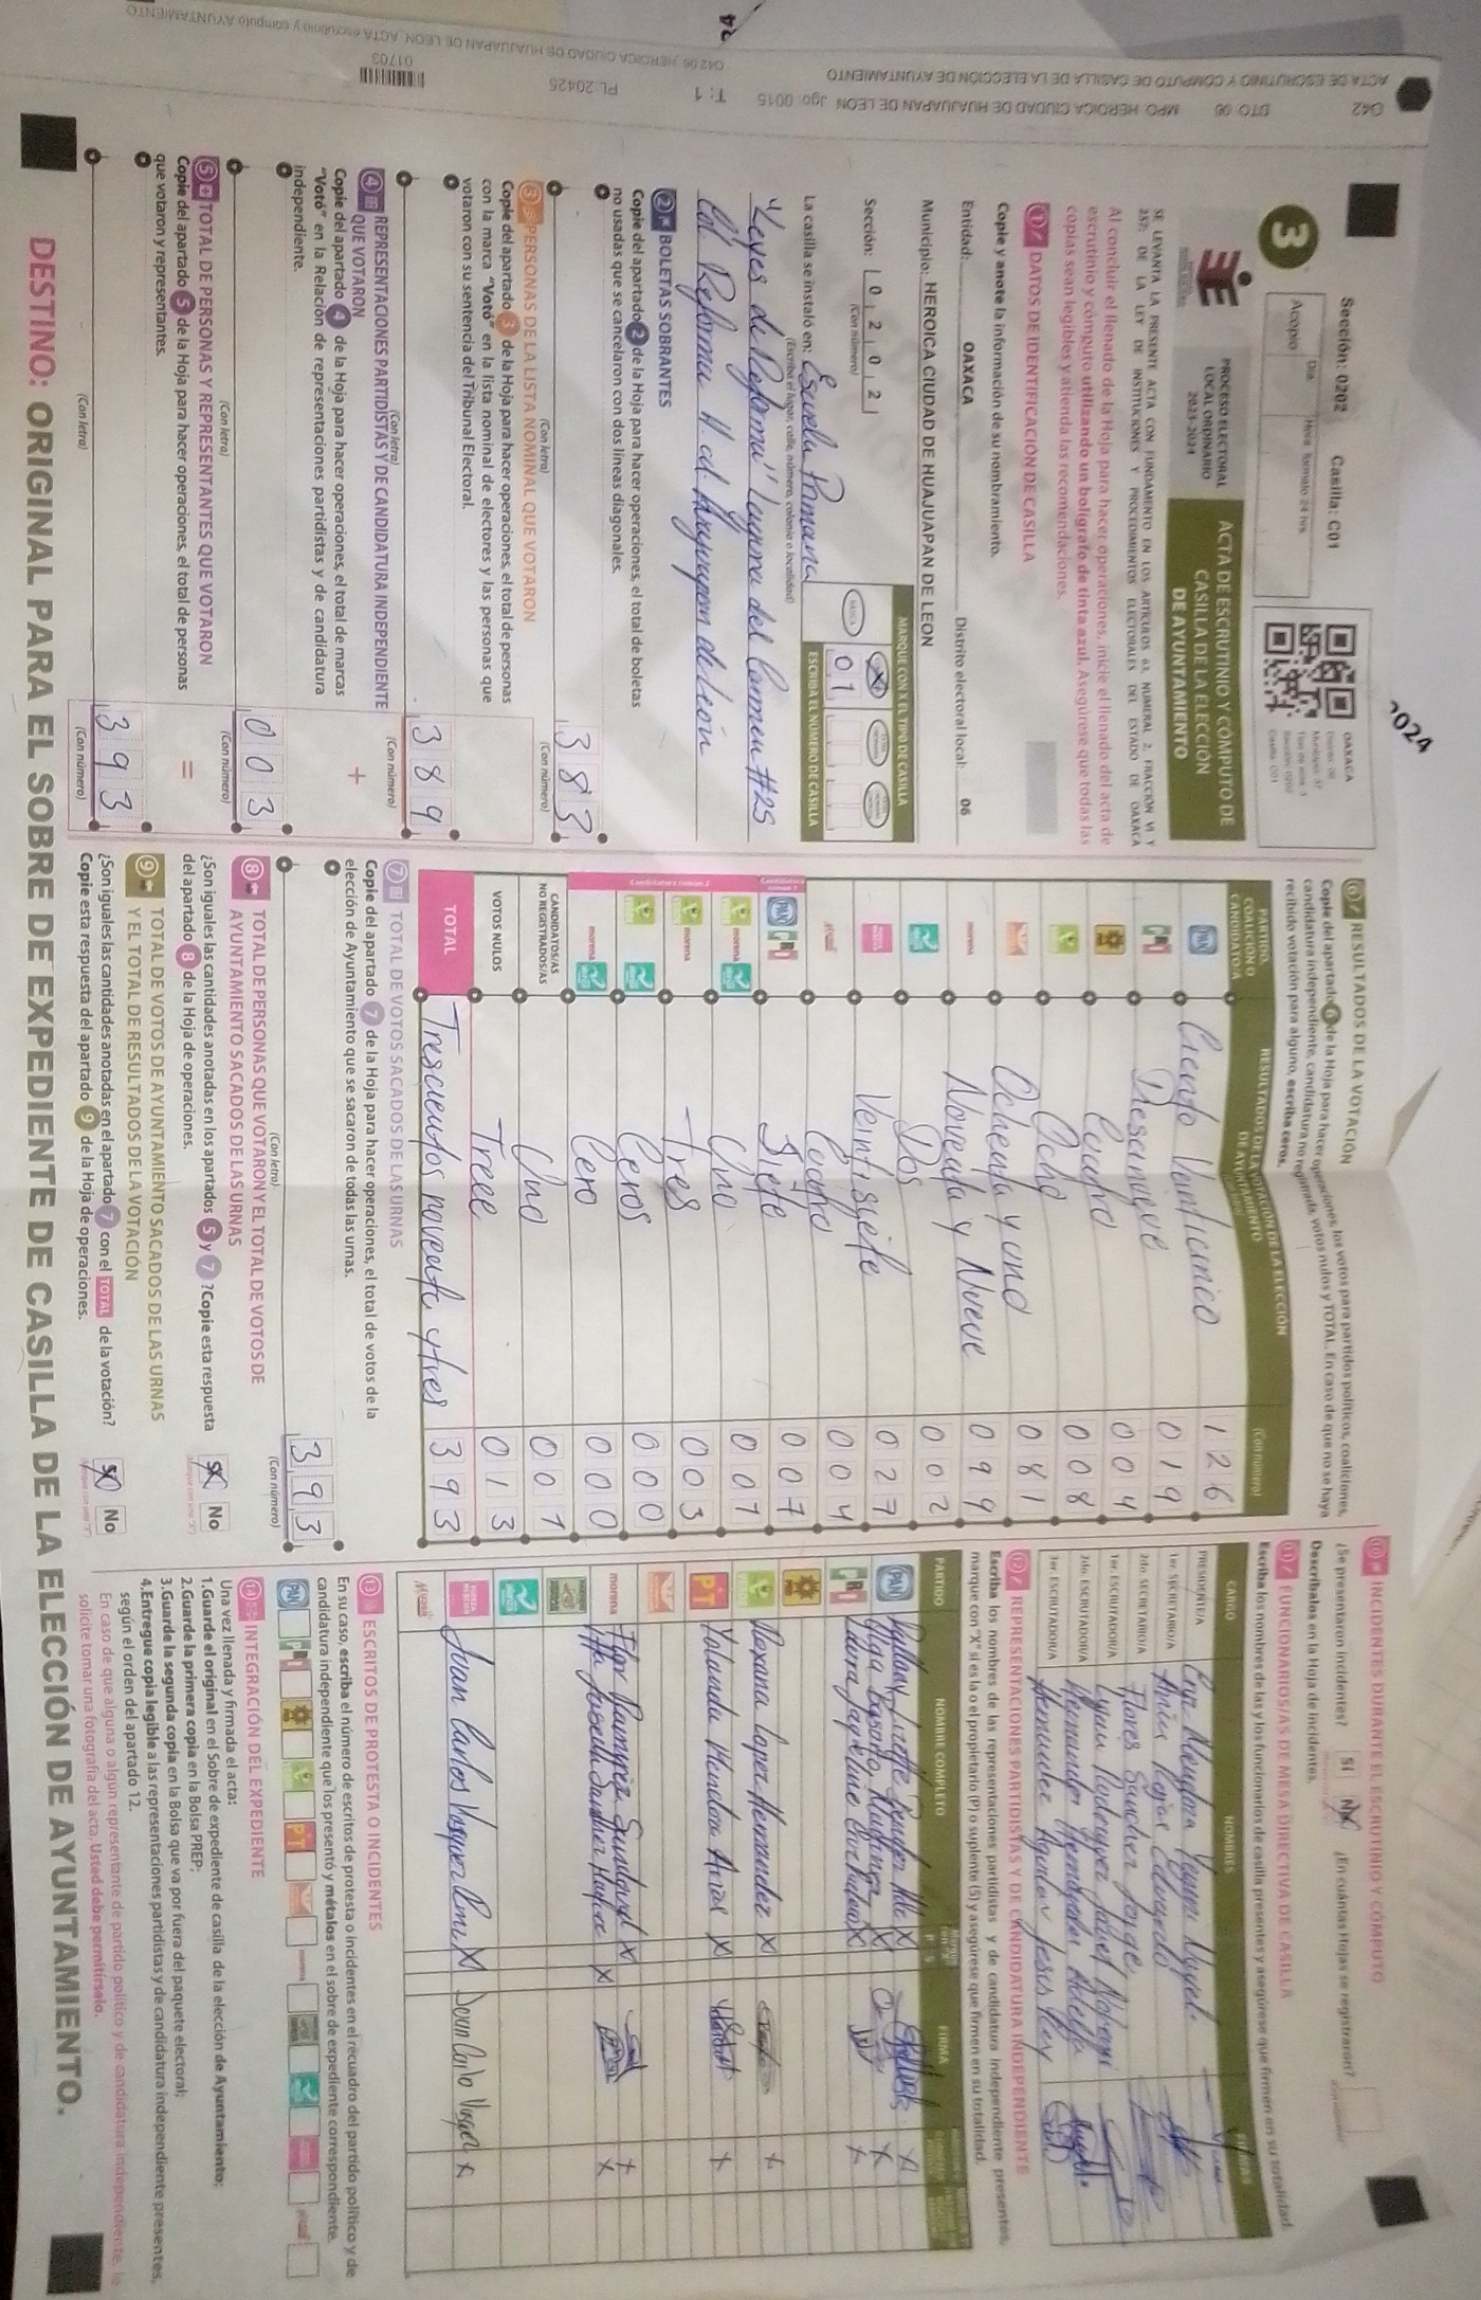 2024
Sección: 0202 Casilla: C01
Acopio Día Hora formato 24 hrs
OAXACA
3
PROCESO ELECTORAL
LOCAL ORDINARIO
2023-2024
ACTA DE ESCRUTINIO Y CÓMPUTO DE
CASILLA DE LA ELECCIÓN
DE AYUNTAMIENTO
SE LEVANTA LA PRESENTE ACTA CON FUNDAMENTO EN LOS ARTÍCULOS 63, NUMERAL 2, FRACCIÓN VI Y
257; DE LA LEY DE INSTITUCIONES Y PROCEDIMIENTOS ELECTORALES DEL ESTADO DE OAXACA
Al concluir el llenado de la Hoja para hacer operaciones, inicie el llenado del acta de
escrutinio y cómputo utilizando un bolígrafo de tinta azul. Asegúrese que todas las
copias sean legibles y atienda las recomendaciones.
1 DATOS DE IDENTIFICACIÓN DE CASILLA
Copie y anote la información de su nombramiento.
Entidad: OAXACA Distrito electoral local: 06
Municipio: HEROICA CIUDAD DE HUAJUAPAN DE LEON
Sección: 0 2 0 2
(Con número)
MARQUE CON X EL TIPO DE CASILLA
X
0 1
ESCRIBA EL NÚMERO DE CASILLA
La casilla se instaló en: Escuela Primaria
(Escriba el lugar, calle, número, colonia o localidad)
"Leyes de Reforma" Laguna del Carmen #25
Col. Reforma H. cd. Huajuapan de León
2 BOLETAS SOBRANTES
Copie del apartado 2 de la Hoja para hacer operaciones, el total de boletas
no usadas que se cancelaron con dos líneas diagonales.
383
(Con letra) (Con número)
3 PERSONAS DE LA LISTA NOMINAL QUE VOTARON
Copie del apartado 3 de la Hoja para hacer operaciones, el total de personas
con la marca "Votó" en la lista nominal de electores y las personas que
votaron con su sentencia del Tribunal Electoral.
389
(Con letra) (Con número)
4 REPRESENTACIONES PARTIDISTAS Y DE CANDIDATURA INDEPENDIENTE
QUE VOTARON
Copie del apartado 4 de la Hoja para hacer operaciones, el total de marcas
"Votó" en la Relación de representaciones partidistas y de candidatura
independiente.
+
003
(Con letra) (Con número)
5 TOTAL DE PERSONAS Y REPRESENTANTES QUE VOTARON
Copie del apartado 5 de la Hoja para hacer operaciones, el total de personas
que votaron y representantes.
=
393
(Con letra) (Con número)
6 RESULTADOS DE LA VOTACIÓN
Copie del apartado 6 de la Hoja para hacer operaciones, los votos para partidos políticos, coaliciones,
candidatura independiente, candidatura no registrada, votos nulos y TOTAL. En caso de que no se haya
recibido votación para alguno, escriba ceros.
PARTIDO,
COALICIÓN O
CANDIDATO/A
RESULTADOS DE LA VOTACIÓN DE LA ELECCIÓN
DE AYUNTAMIENTO
(Con número)
PAN Ciento Veinticinico 126
PRI Diesinueve 019
Cuatro 004
Ocho 008
Ochenta y uno 081
morena Noventa y Nueve 099
Dos 002
Veintisiete 027
Cuatro 004
PAN PRI Siete 007
morena Uno 001
morena Tres 003
Ceros 000
morena Cero 000
CANDIDATOS/AS
NO REGISTRADOS/AS Uno 001
VOTOS NULOS Trece 013
TOTAL Trescientos noventa y tres 393
7 TOTAL DE VOTOS SACADOS DE LAS URNAS
Copie del apartado 7 de la Hoja para hacer operaciones, el total de votos de la
elección de Ayuntamiento que se sacaron de todas las urnas.
393
(Con letra) (Con número)
8 TOTAL DE PERSONAS QUE VOTARON Y EL TOTAL DE VOTOS DE
AYUNTAMIENTO SACADOS DE LAS URNAS
¿Son iguales las cantidades anotadas en los apartados 5 y 7 ? Copie esta respuesta
del apartado 8 de la Hoja de operaciones.
Sí No
9 TOTAL DE VOTOS DE AYUNTAMIENTO SACADOS DE LAS URNAS
Y EL TOTAL DE RESULTADOS DE LA VOTACIÓN
¿Son iguales las cantidades anotadas en el apartado 7 con el TOTAL de la votación?
Copie esta respuesta del apartado 9 de la Hoja de operaciones.
Sí No
10 INCIDENTES DURANTE EL ESCRUTINIO Y CÓMPUTO
¿Se presentaron incidentes? Sí No ¿En cuántas Hojas se registraron?
Descríbalos en la Hoja de incidentes.
11 FUNCIONARIOS/AS DE MESA DIRECTIVA DE CASILLA
Escriba los nombres de las y los funcionarios de casilla presentes y asegúrese que firmen en su totalidad.
CARGO NOMBRES FIRMAS
PRESIDENTE/A
1er. SECRETARIO/A Rojas Eduardo
2do. SECRETARIO/A Flores Sanchez Jorge
1er. ESCRUTADOR/A
2do. ESCRUTADOR/A Hernandez
3er. ESCRUTADOR/A Hernandez Aguilar Jesus
12 REPRESENTACIONES PARTIDISTAS Y DE CANDIDATURA INDEPENDIENTE
Escriba los nombres de las representaciones partidistas y de candidatura independiente presentes,
marque con "X" si es la o el propietario (P) o suplente (S) y asegúrese que firmen en su totalidad.
PARTIDO NOMBRE COMPLETO P S FIRMA
PAN
Olga Basurto X
PRI Laura Jaqueline X
Roxana Lopez Hernandez X
PT Yolanda Mendoza Arias X
morena Flor Ramirez Sandoval X
Juan Carlos Vasquez X Juan Carlo Vasquez X
13 ESCRITOS DE PROTESTA O INCIDENTES
En su caso, escriba el número de escritos de protesta o incidentes en el recuadro del partido político y de
candidatura independiente que los presentó y métalos en el sobre de expediente correspondiente.
PAN PRI PT
14 INTEGRACIÓN DEL EXPEDIENTE
Una vez llenada y firmada el acta:
1.Guarde el original en el Sobre de expediente de casilla de la elección de Ayuntamiento;
2.Guarde la primera copia en la Bolsa PREP;
3.Guarde la segunda copia en la Bolsa que va por fuera del paquete electoral;
4.Entregue copia legible a las representaciones partidistas y de candidatura independiente presentes,
según el orden del apartado 12.
En caso de que alguna o algún representante de partido político y de candidatura independiente, le
solicite tomar una fotografía del acta, Usted debe permitírselo.
DESTINO: ORIGINAL PARA EL SOBRE DE EXPEDIENTE DE CASILLA DE LA ELECCIÓN DE AYUNTAMIENTO.
ACTA DE ESCRUTINIO Y CÓMPUTO DE CASILLA DE LA ELECCIÓN DE AYUNTAMIENTO
042 DTO. 06 MPO. HEROICA CIUDAD DE HUAJUAPAN DE LEON Jgo. 0015 T: 1 PL: 20425
01703
042 06 HEROICA CIUDAD DE HUAJUAPAN DE LEON ACTA escrutinio y cómputo AYUNTAMIENTO